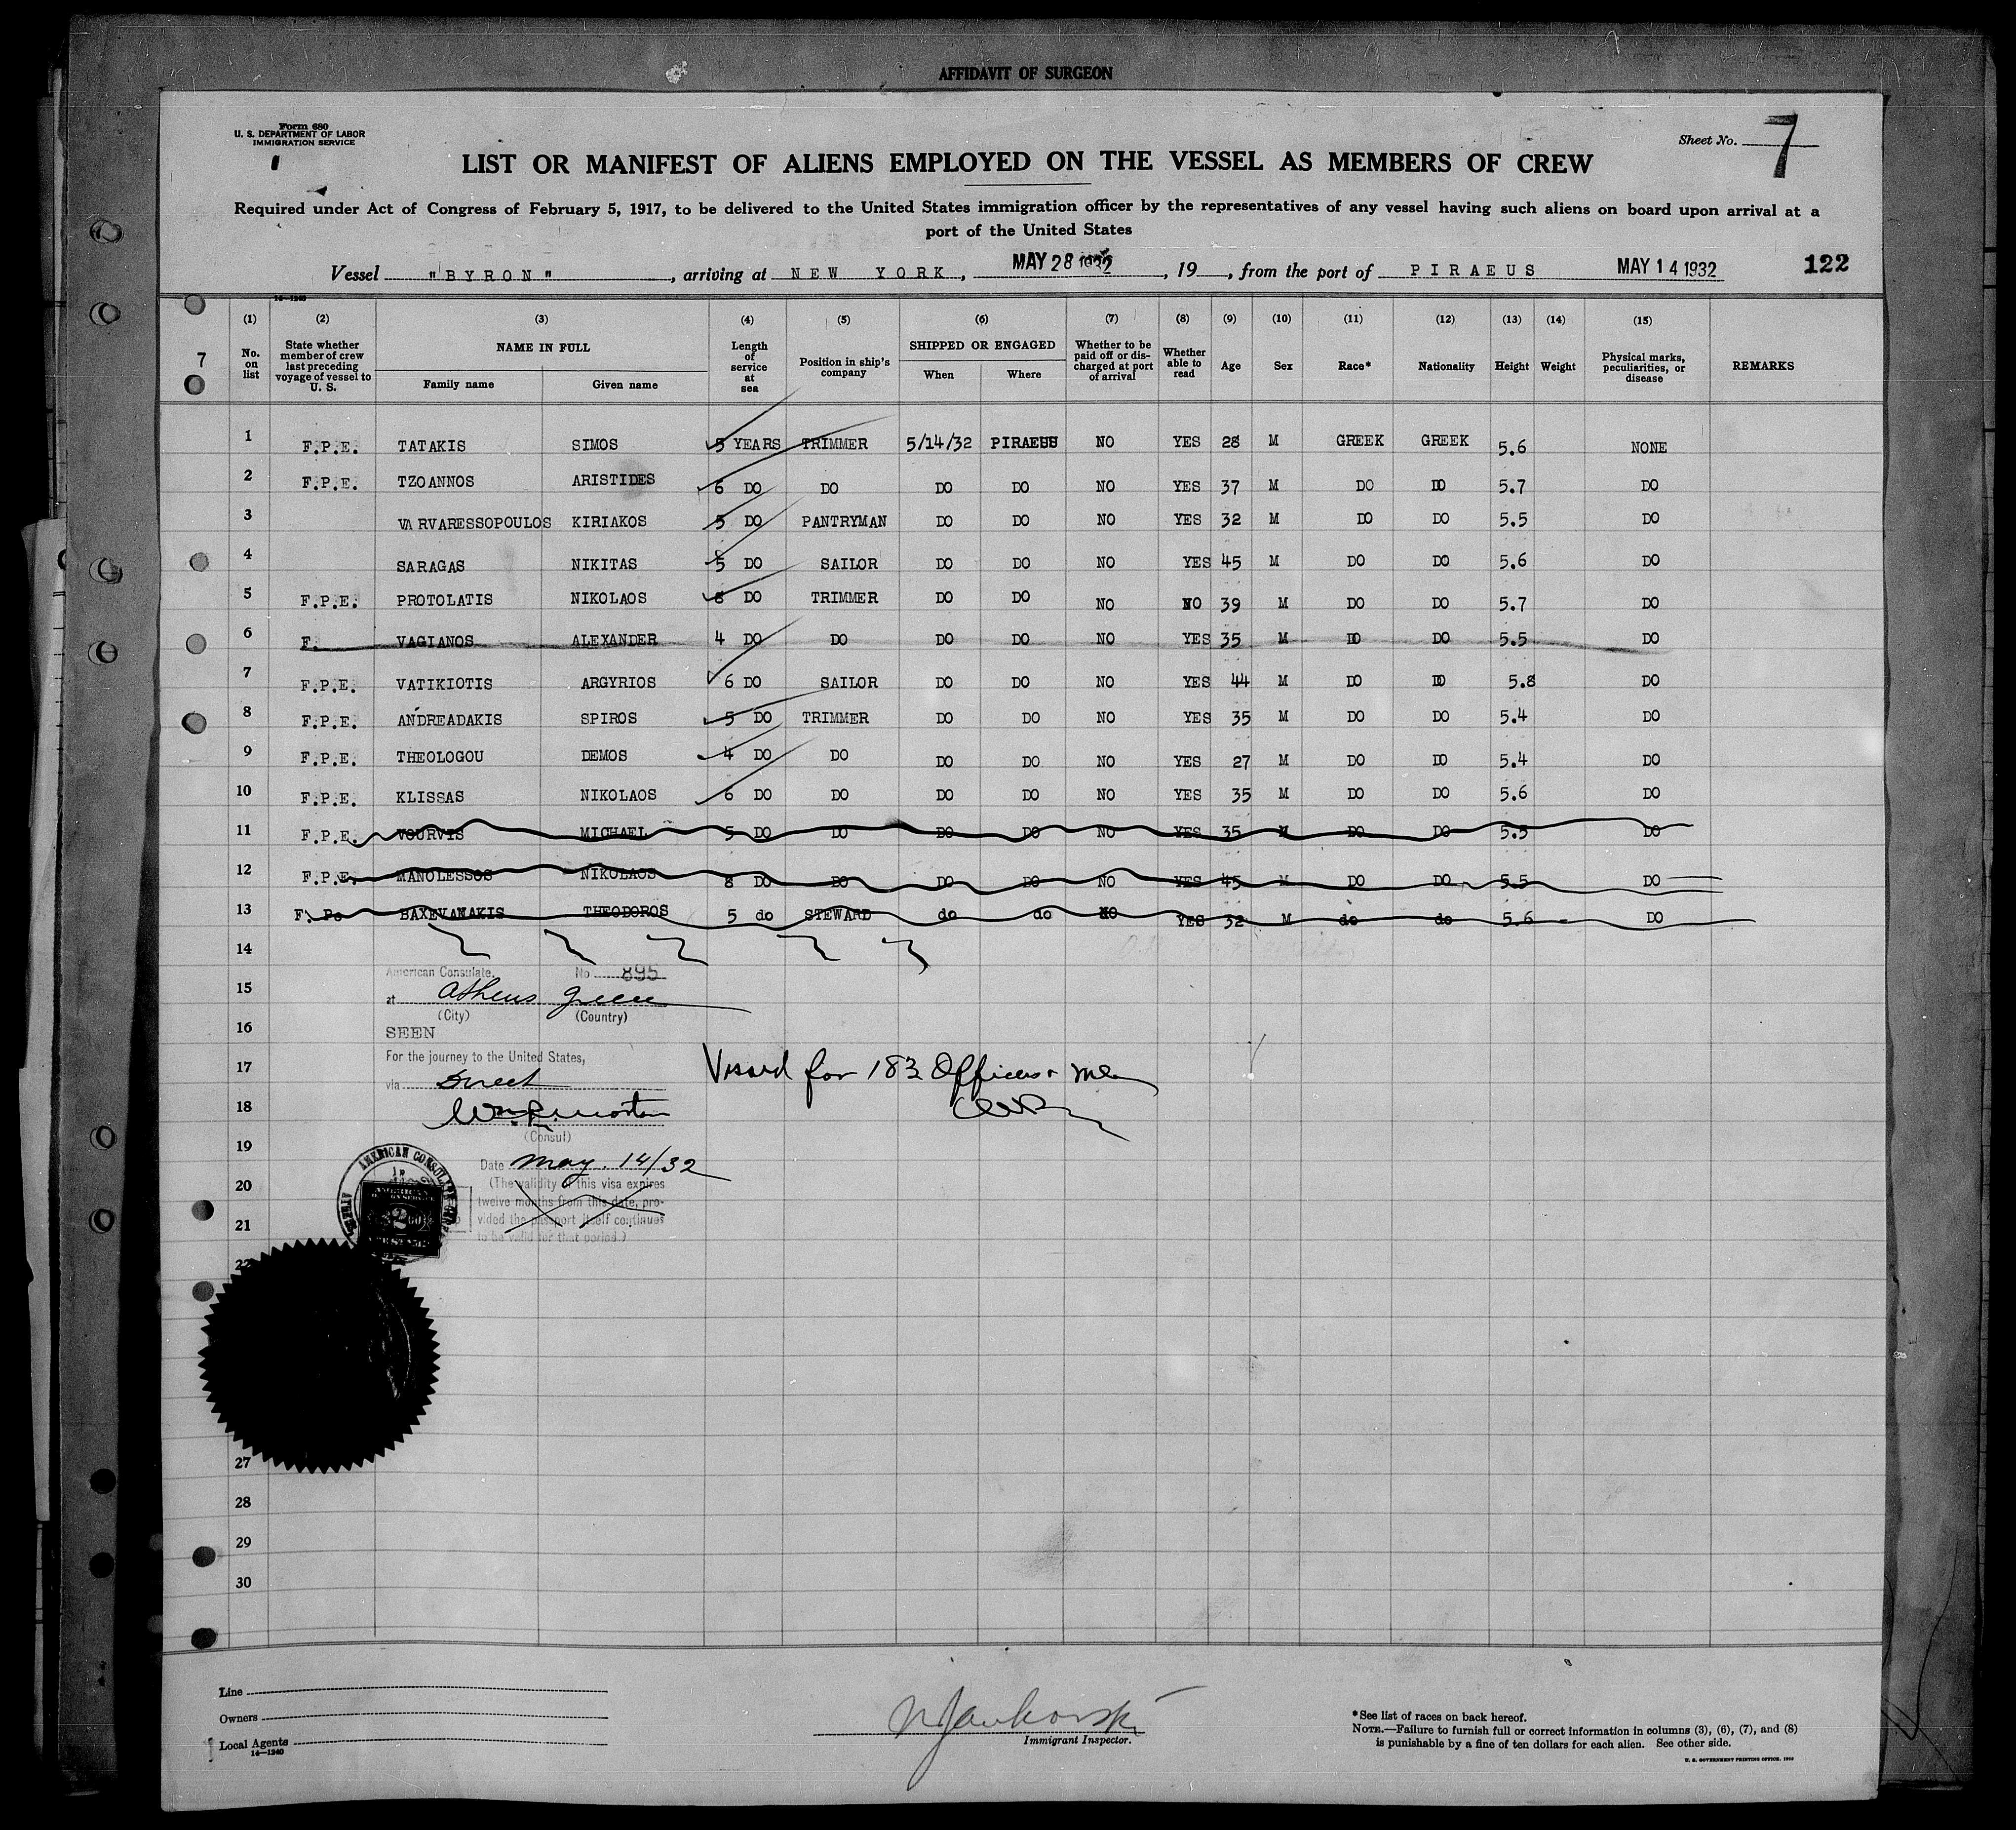 AFFIDAVIT OF SURGEON
Form 680
U. S. DEPARTMENT OF LABOR
IMMIGRATION SERVICE
Sheet No. 7
LIST OR MANIFEST OF ALIENS EMPLOYED ON THE VESSEL AS MEMBERS OF CREW
Required under Act of Congress of February 5, 1917, to be delivered to the United States immigration officer by the representatives of any vessel having such aliens on board upon arrival at a
port of the United States
Vessel "BYRON", arriving at NEW YORK, MAY 28 1932, 19, from the port of PIRAEUS MAY 14 1932 122
14—1240
(1) (2) (3) (4) (5) (6) (7) (8) (9) (10) (11) (12) (13) (14) (15)
7 No. on list State whether member of crew last preceding voyage of vessel to U. S. NAME IN FULL Length of service at sea Position in ship's company SHIPPED OR ENGAGED Whether to be paid off or discharged at port of arrival Whether able to read Age Sex Race* Nationality Height Weight Physical marks, peculiarities, or disease REMARKS
Family name Given name When Where
1 F.P.E. TATAKIS SIMOS 5 YEARS TRIMMER 5/14/32 PIRAEUS NO YES 28 M GREEK GREEK 5.6 NONE
2 F.P.E. TZOANNOS ARISTIDES 6 DO DO DO DO NO YES 37 M DO DO 5.7 DO
3 VARVARESSOPOULOS KIRIAKOS 5 DO PANTRYMAN DO DO NO YES 32 M DO DO 5.5 DO
4 SARAGAS NIKITAS 5 DO SAILOR DO DO NO YES 45 M DO DO 5.6 DO
5 F.P.E. PROTOLATIS NIKOLAOS 8 DO TRIMMER DO DO NO NO 39 M DO DO 5.7 DO
6 F. VAGIANOS ALEXANDER 4 DO DO DO DO NO YES 35 M DO DO 5.5 DO
7 F.P.E. VATIKIOTIS ARGYRIOS 6 DO SAILOR DO DO NO YES 44 M DO DO 5.8 DO
8 F.P.E. ANDREADAKIS SPIROS 5 DO TRIMMER DO DO NO YES 35 M DO DO 5.4 DO
9 F.P.E. THEOLOGOU DEMOS 4 DO DO DO DO NO YES 27 M DO DO 5.4 DO
10 F.P.E. KLISSAS NIKOLAOS 6 DO DO DO DO NO YES 35 M DO DO 5.6 DO
11 F.P.E. VOURVIS MICHAEL 5 DO DO DO DO NO YES 35 M DO DO 5.5 DO
12 F.P.E. MANOLESSOS NIKOLAOS 8 DO DO DO DO NO YES 45 M DO DO 5.5 DO
13 F. Po BAXEVANAKIS THEODOROS 5 do STEWARD do do NO YES 32 M do do 5.6 - DO
14
American Consulate, No 895
15 at Athens Greece
(City) (Country)
16 SEEN
For the journey to the United States,
17 via Direct Visaed for 183 Officers & men
18 Wm. R. Morton
(Consul)
19
Date May. 14/32
20 (The validity of this visa expires
twelve months from this date, pro-
21 vided the passport itself continues
to be valid for that period.)
AMERICAN CONSULATE
22
27
28
29
30
Line
Owners
Local Agents
14—1240
Immigrant Inspector.
*See list of races on back hereof.
NOTE.—Failure to furnish full or correct information in columns (3), (6), (7), and (8)
is punishable by a fine of ten dollars for each alien. See other side.
U. S. GOVERNMENT PRINTING OFFICE